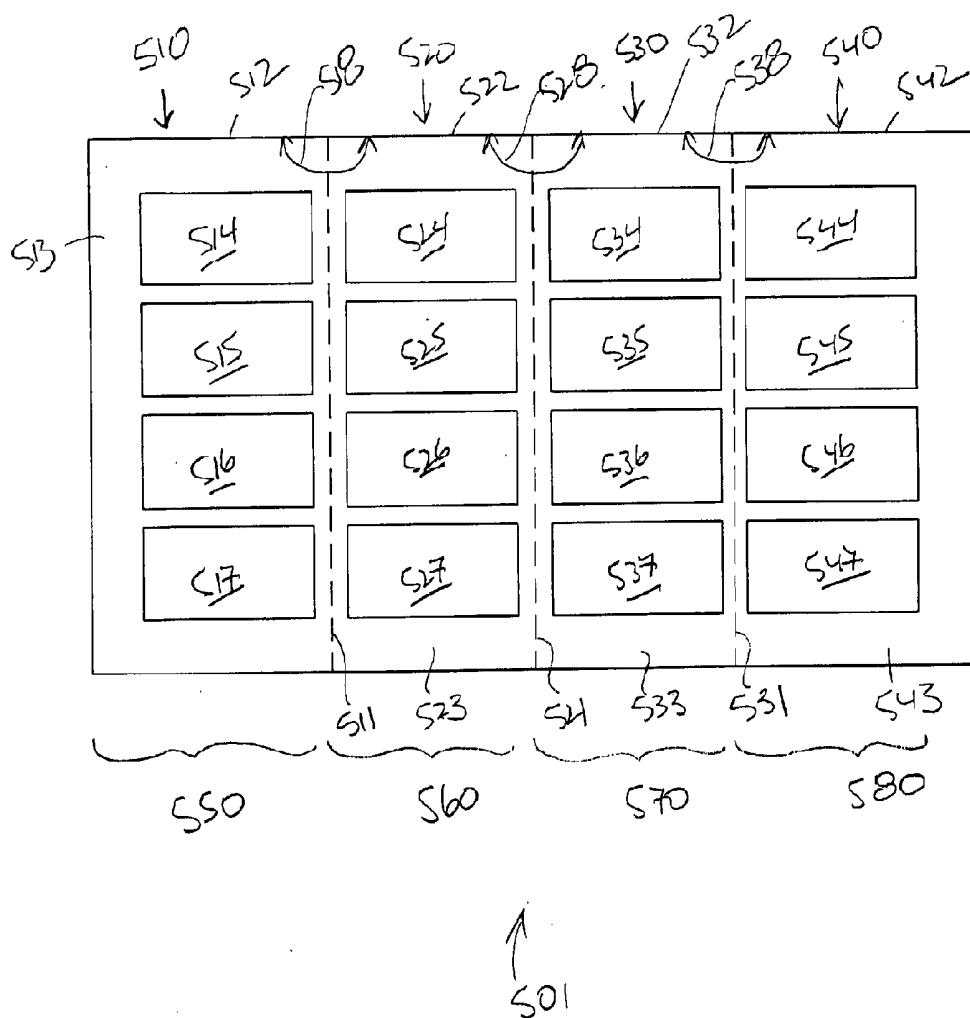 510 512 518 520 522 528 530 532 538 540 542
513
514 524 534 544
515 525 535 545
516 526 536 546
517 527 537 547
511 523 521 533 531 543
550 560 570 580
501